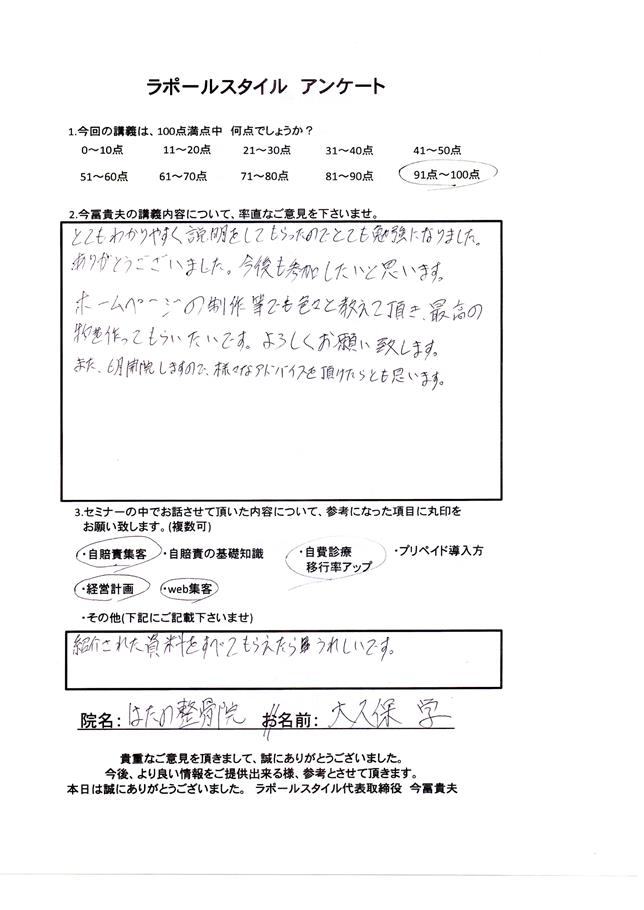 ラポールスタイル アンケート
1.今回の講義は、100点満点中 何点でしょうか？
0～10点 11～20点 21～30点 31～40点 41～50点
51～60点 61～70点 71～80点 81～90点 91点～100点
2.今冨貴夫の講義内容について、率直なご意見を下さいませ。
とてもわかりやすく説明をしてもらったのでとても勉強になりました。
ありがとうございました。今後も参加したいと思います。
ホームページの制作等でも色々と教えて頂き、最高の
物を作ってもらいたいです。よろしくお願い致します。
また、6月開院しますので、様々なアドバイスを頂けたらとも思います。
3.セミナーの中でお話させて頂いた内容について、参考になった項目に丸印を
お願い致します。(複数可)
・自賠責集客 ・自賠責の基礎知識 ・自費診療 ・プリペイド導入方
移行率アップ
・経営計画 ・web集客
・その他(下記にご記載下さいませ)
紹介された資料をすべてもらえたらうれしいです。
院名：はたの整骨院 お名前：大久保 学
貴重なご意見を頂きまして、誠にありがとうございました。
今後、より良い情報をご提供出来る様、参考とさせて頂きます。
本日は誠にありがとうございました。 ラポールスタイル代表取締役 今冨貴夫